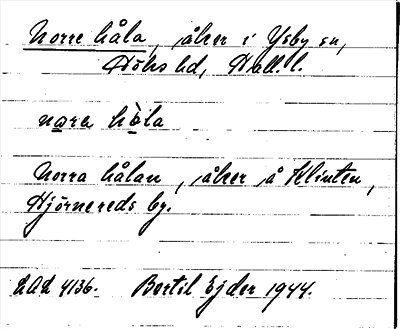 Norre håla, åker i Ysby sn,
Höks hd, Hall. l.
nǫra hò̱la
Norra hålan, åker å Klinten,
Hjörnereds by.
LAL 4136. Bertil Ejder 1944.